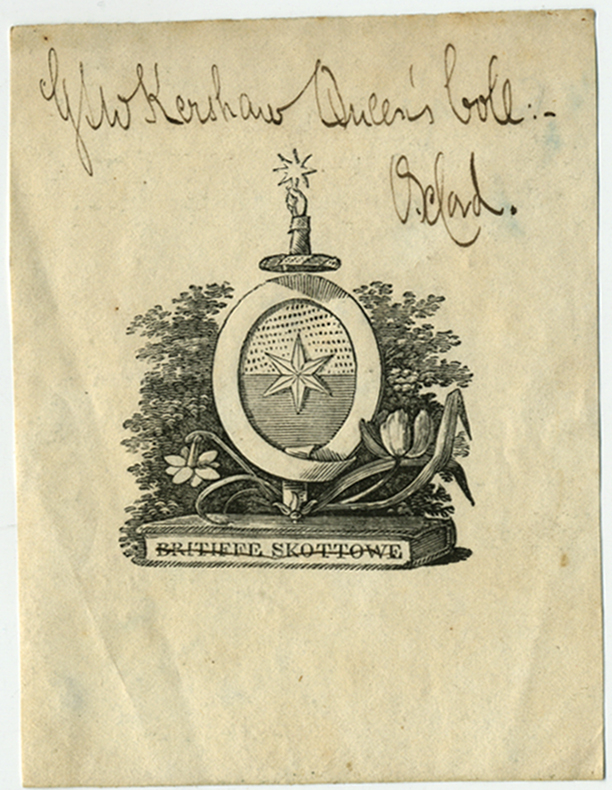 GW Kershaw Queen's Coll:-
Oxford.
BRITIFFE SKOTTOWE